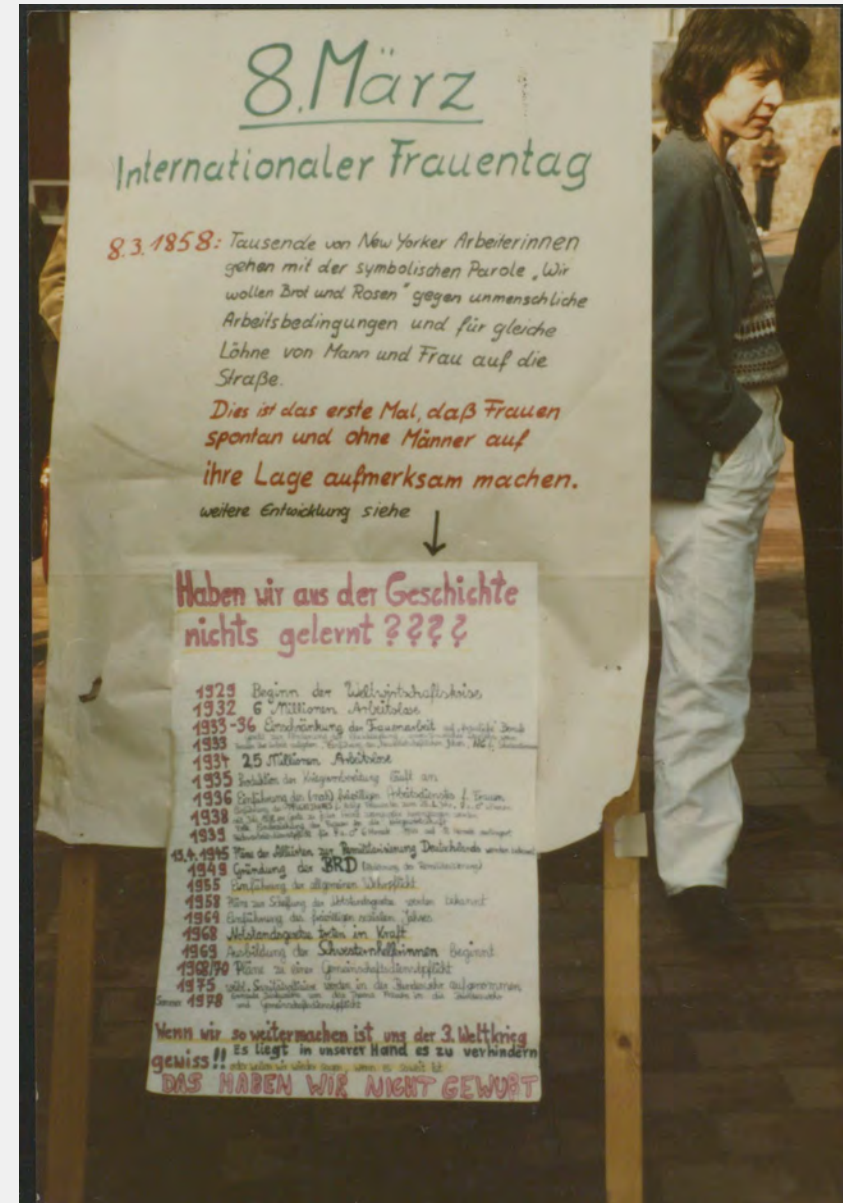 8. März
Internationaler Frauentag
8.3.1858: Tausende von New Yorker Arbeiterinnen
gehen mit der symbolischen Parole „Wir
wollen Brot und Rosen" gegen unmenschliche
Arbeitsbedingungen und für gleiche
Löhne von Mann und Frau auf die
Straße.
Dies ist das erste Mal, daß Frauen
spontan und ohne Männer auf
ihre Lage aufmerksam machen.
weitere Entwicklung siehe
Haben wir aus der Geschichte
nichts gelernt ????
1929 Beginn der Weltwirtschaftskrise
1932 6 Millionen Arbeitslose
1933-36 Einschränkung der Frauenarbeit auf
1933
1934 2,5 Millionen Arbeitslose
1935 Produktion der läuft an
1936 Einführung des (noch) freiwilligen Arbeitsdienstes f. Frauen
1938
1939
13.4.1945 Pläne der Alliierten zur Remilitarisierung Deutschlands werden
1949 Gründung der BRD
1955 Einführung der allgemeinen Wehrpflicht
1958 Pläne zur Schaffung der Notstandsgesetze werden bekannt
1964 Einführung des freiwilligen sozialen Jahres
1968 Notstandsgesetze treten in Kraft
1969 Ausbildung der Schwesternhelferinnen beginnt
1968/70 Pläne zu einer Gemeinschaftsdienstpflicht
1975 weibl. Sanitätsoffiziere werden in die Bundeswehr aufgenommen
Sommer 1978
Wenn wir so weitermachen ist uns der 3. Weltkrieg
gewiss!! Es liegt in unserer Hand es zu verhindern
oder wollen wir wieder sagen, wenn es soweit ist
DAS HABEN WIR NICHT GEWUßT